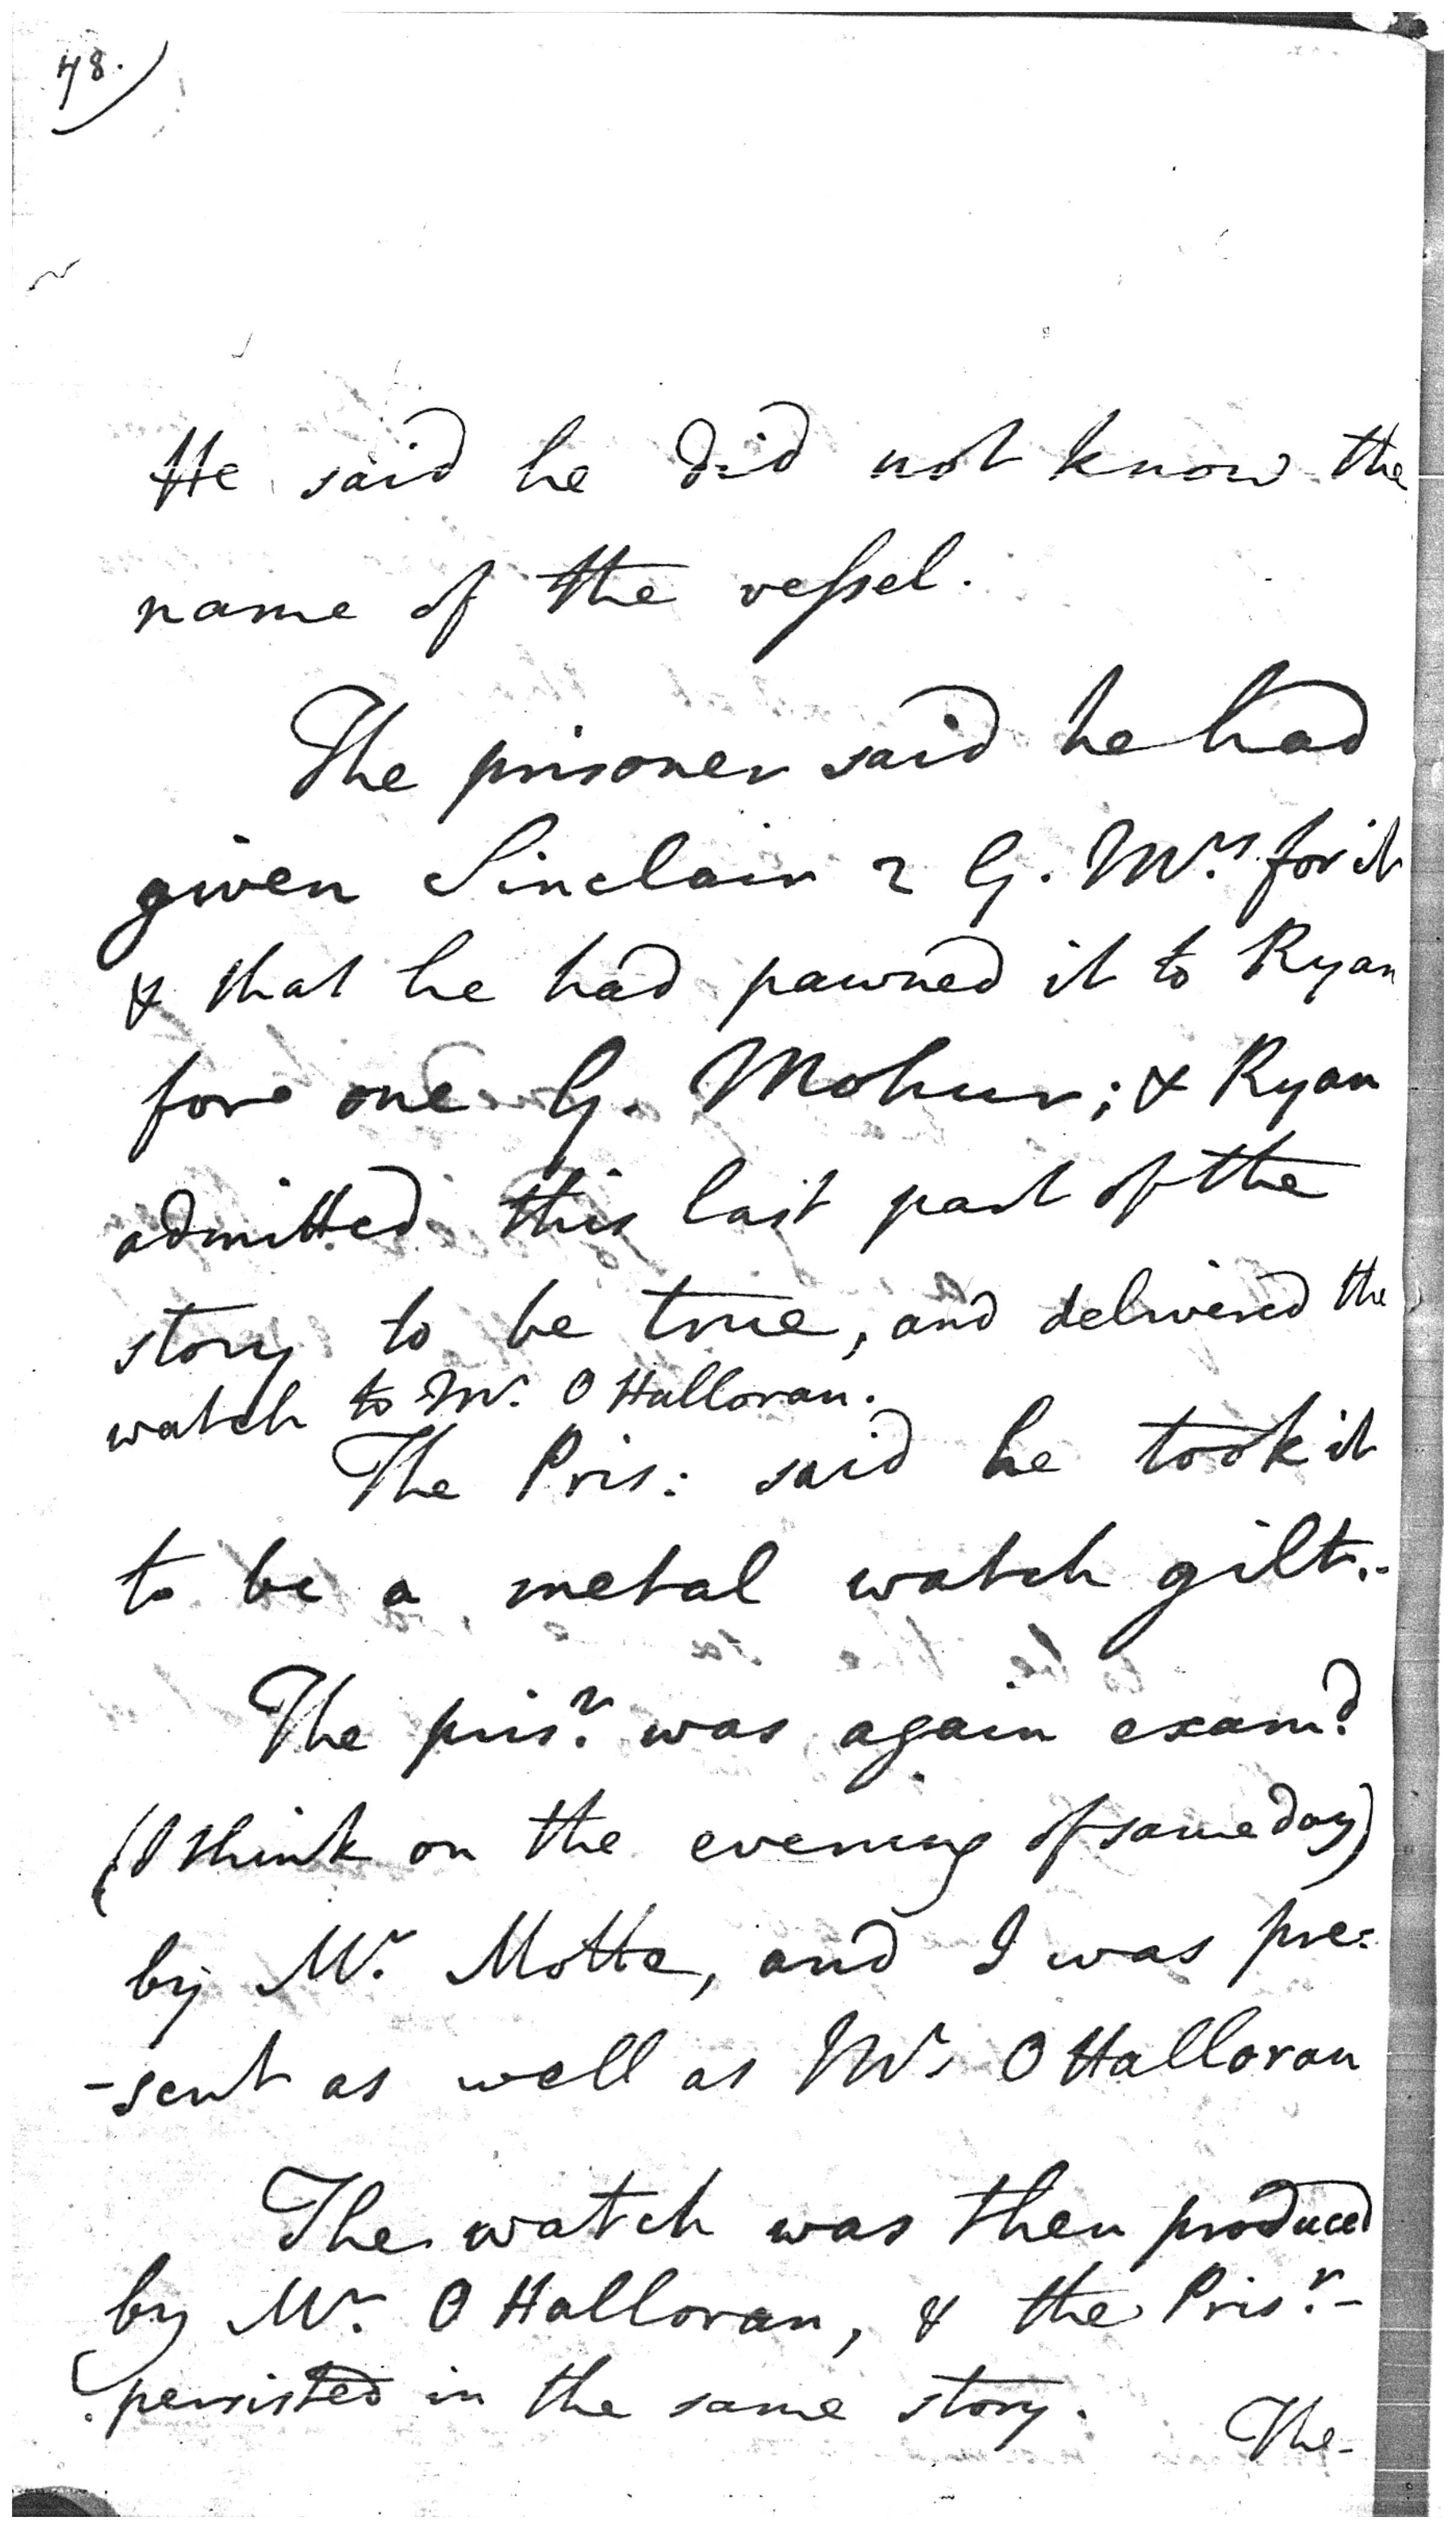 48.
He said he did not know the
name of the veſsel.
The prisoner said he had
given Sinclair 2 G. Mrs. for it
& that he had pawned it to Ryan
for one G. Mohur; & Ryan
admitted this last part of the
story to be true, and delivered the
watch to Mr. O Halloran.
The Pris: said he took it
to be a metal watch gilt.-
The prisr. was again examd.
(I think on the evening of same day)
by Mr. Motte, and I was pre=
-sent as well as Mr. O Halloran
The watch was then produced
by Mr. O Halloran, & the Prisr.-
persisted in the same story.
The-